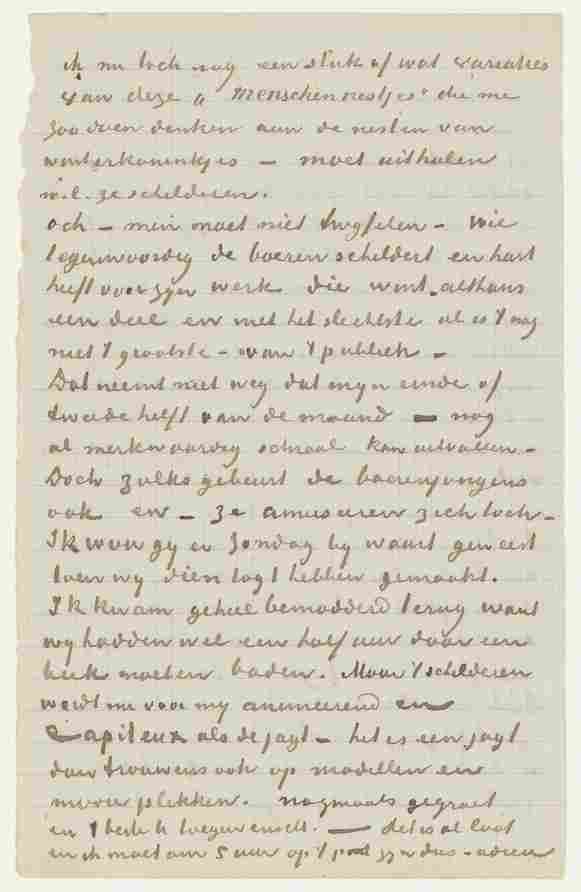 ik nu toch nog een stuk of wat variaties
van deze „menschennestjes” die me
zoo doen denken aan de nesten van
winterkoninkjes – moet uithalen
w.l. ze schilderen.
och – men moet niet twyfelen – wie
tegenwoordig de boeren schildert en hart
heeft voor zyn werk die wint althans
een deel en niet het slechtste al is 't nog
niet 't grootste – van 't publiek –
Dat neemt niet weg dat myn einde of
tweede helft van de maand – nog
al merkwaardig schraal kan uitvallen –
Doch zulks gebeurt de boerenjongens
ook en – ze amuseren zich toch –
Ik wou gy er Zondag by waart geweest
toen wy dien togt hebben gemaakt.
Ik kwam geheel bemodderd terug want
wy hadden wel een half uur door een
beek moeten baden. Maar 't schilderen
werdt nu voor my animeerend en
Capiteux als de jagt – het is een jagt
dan trouwens ook op modellen en
mooie plekken. nogmaals gegroet
en 't beste U toegewenscht. – het is al laat
en ik moet om 5 uur op 't pad zyn dus – adieu